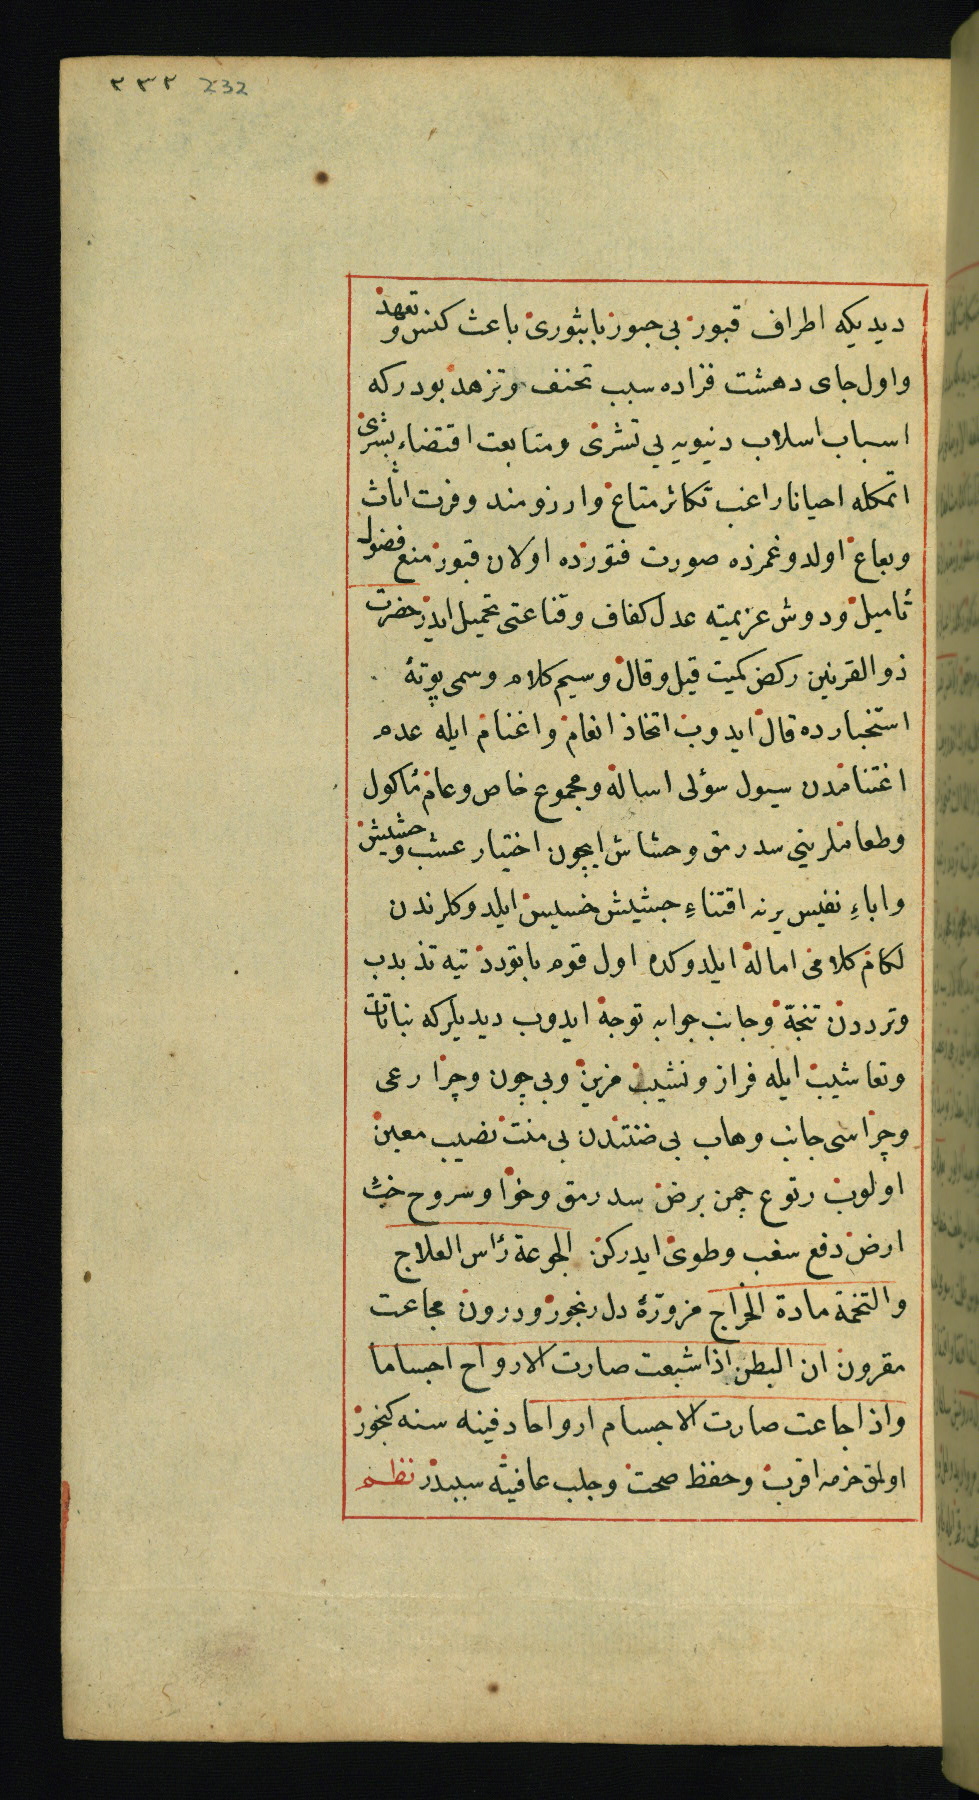 ٢٣٢ 232
ديديكه اطراف قبور بى حبور باثبورى باعث كنس و تعهد
و اول جاى دهشت فزاده سبب تحنف و تزهد بودر كه
اسباب اسلاب دنيويه يى تشرى و متابعت اقتضاء بشرى
اتمكله احيانا راغب تكاثر متاع و ارزومند وفرت اثاث
و بعاع اولدوغمزده صورت فتورده اولان قبور منع فضول
تأميل و دوش عزيمته عدل كفاف و قناعتى تحميل ايدر حضرت
ذو القرنين ركض كميت قيل و قال و سيم كلام و سمى پوتۀ
استخبارده قال ايدوب اتخاذ انعام و اغنام ايله عدم
اغتنامدن سيول سؤلى اساله و مجموع خاص و عام مأكول
و طعاملرينى سد رمق و حشاش ايچون اختيار عشب و حشيش
و اباءِ نفيس يرنه اقتناءِ جشيش خسيس ايلدوكلرندن
لكام كلامى اماله ايلدوكده اول قوم باتودد تيه تذبدب
و ترددن تنجۀ و جانب جوابه توجه ايدوب ديديلركه نباتات
و تعاشيب ايله فراز و نشيب مزين و بى چون و چرا رعى
و چراسى جانب وهاب بى ضنتندن بى منت نصيب معين
اولوب رتوع چمن برض سد رمق و خوا و سروح خبت
ارض دفع سغب و طوى ايدركن الجوعة رأس العلاج
و التخمة مادة الخراج مزورۀ دل رنجور و درون مجاعت
مقرون ان البطن اذا شبعت صارت الارواح اجساما
و اذا جاعت صارت الاجسام ارواحا دفينه سنه كنجور
اولمق حزمه اقرب و حفظ صحت و جلب عافيته سببدر نظم